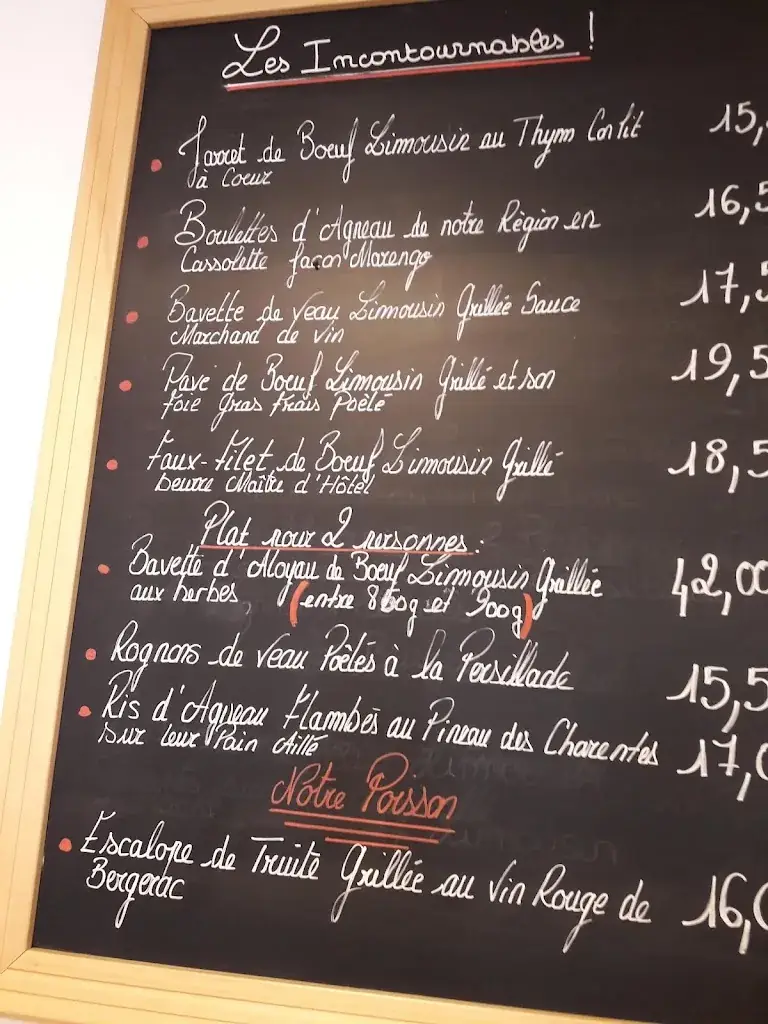 Les Incontournables !
Jarret de Boeuf Limousin au Thym Confit 15,
à Coeur
Boulettes d'Agneau de notre Région en 16,5
Cassolette façon Marengo
Bavette de Veau Limousin Grillée Sauce 17,5
Marchand de Vin
Pavé de Boeuf Limousin Grillé et son 19,5
foie Gras frais Poêlé
Faux-Filet de Boeuf Limousin Grillé 18,5
beurre Maître d'Hôtel
Plat pour 2 personnes :
Bavette d'Aloyau de Boeuf Limousin Grillée 42,00
aux herbes (entre 850g et 900g)
Rognons de Veau Poêlés à la Persillade 15,5
Ris d'Agneau Flambés au Pineau des Charentes 17,0
sur leur Pain Aillé
Notre Poisson
Escalope de Truite Grillée au Vin Rouge de 16,0
Bergerac